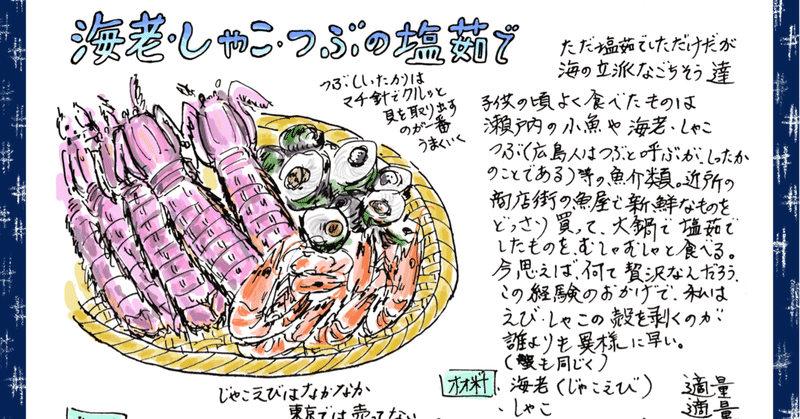 海老・しゃこ・つぶの塩茹で
ただ塩茹でしただけだが
海の立派なごちそう達
つぶ(しいたか)は
マチ針でクルッと
貝を取り出す
のが一番
うまくいく
子供の頃よく食べたものは
瀬戸内の小魚や海老・しゃこ
つぶ(広島人はつぶと呼ぶが、したか
のことである)等の魚介類。近所の
商店街の魚屋で新鮮なものを
どっさり買って、大鍋で塩茹で
したものを、むしゃむしゃと食べる。
今思えば、何て贅沢なんだろう、
この経験のおかげで、私は
えび・しゃこの殻を剥くのが
誰よりも異様に早い。
(蟹も同じく)
じゃこえびはなかなか
東京では売ってない
材料
・海老(じゃこえび) 適量
・しゃこ 適量